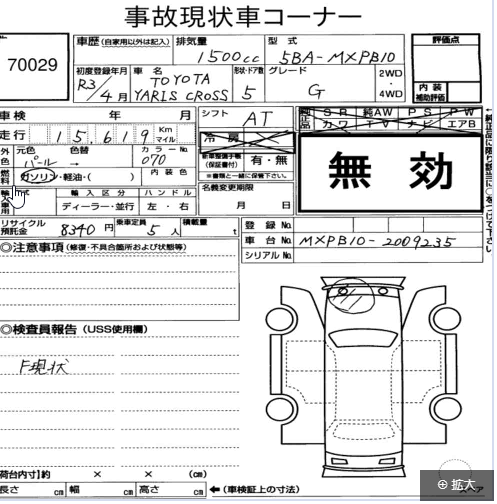 事故現状車コーナー
70029
車歴(自家用以外は記入) 排気量 型式 評価点
1500cc 5BA-MXPB10
初度登録年月 車名 形状・ドア数 グレード 2WD・4WD
R3/4月 TOYOTA YARIS CROSS 5 G
内装補助評価
車検 年 月 シフト AT
純正品 SR 純AW PS PW
カワ TV ナビ エアB
走行 15,619 Km マイル 冷房
外色 元色 色替 カラーNo.
パール → 070
新車整備手帳(保証書付) 有・無
※書類と一緒に保管下さい。
無効
燃料 ガソリン・軽油・( ) 内装色
輸入区分 ハンドル 名義変更期限
ディーラー・並行 左・右 月 日
リサイクル預託金 8340円 乗車定員 5人 積載量 t
登録No.
車台No. MXPB10-2009235
シリアルNo.
◎注意事項(修復・不具合箇所および状態等)
◎検査員報告(USS使用欄)
F現状
荷台内寸)約 × × (cm)
長さ cm 幅 cm 高さ cm ←(車検証上の寸法)
拡大